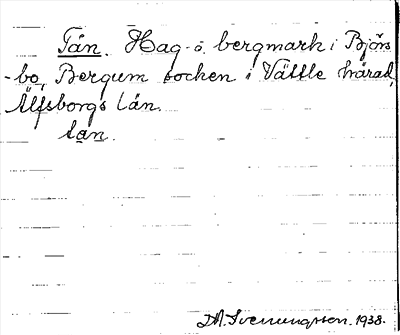 Tån. Hag- o. bergmark i Björs
-bo, Bergum socken i Vättle härad,
Älfsborgs län.
tan.
D.A. Svenungsson. 1938.